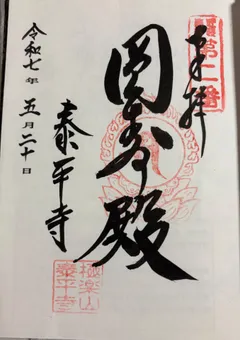 奉拝
第二番
圓壽殿
泰平寺
令和七年五月二十日
極楽山
泰平寺